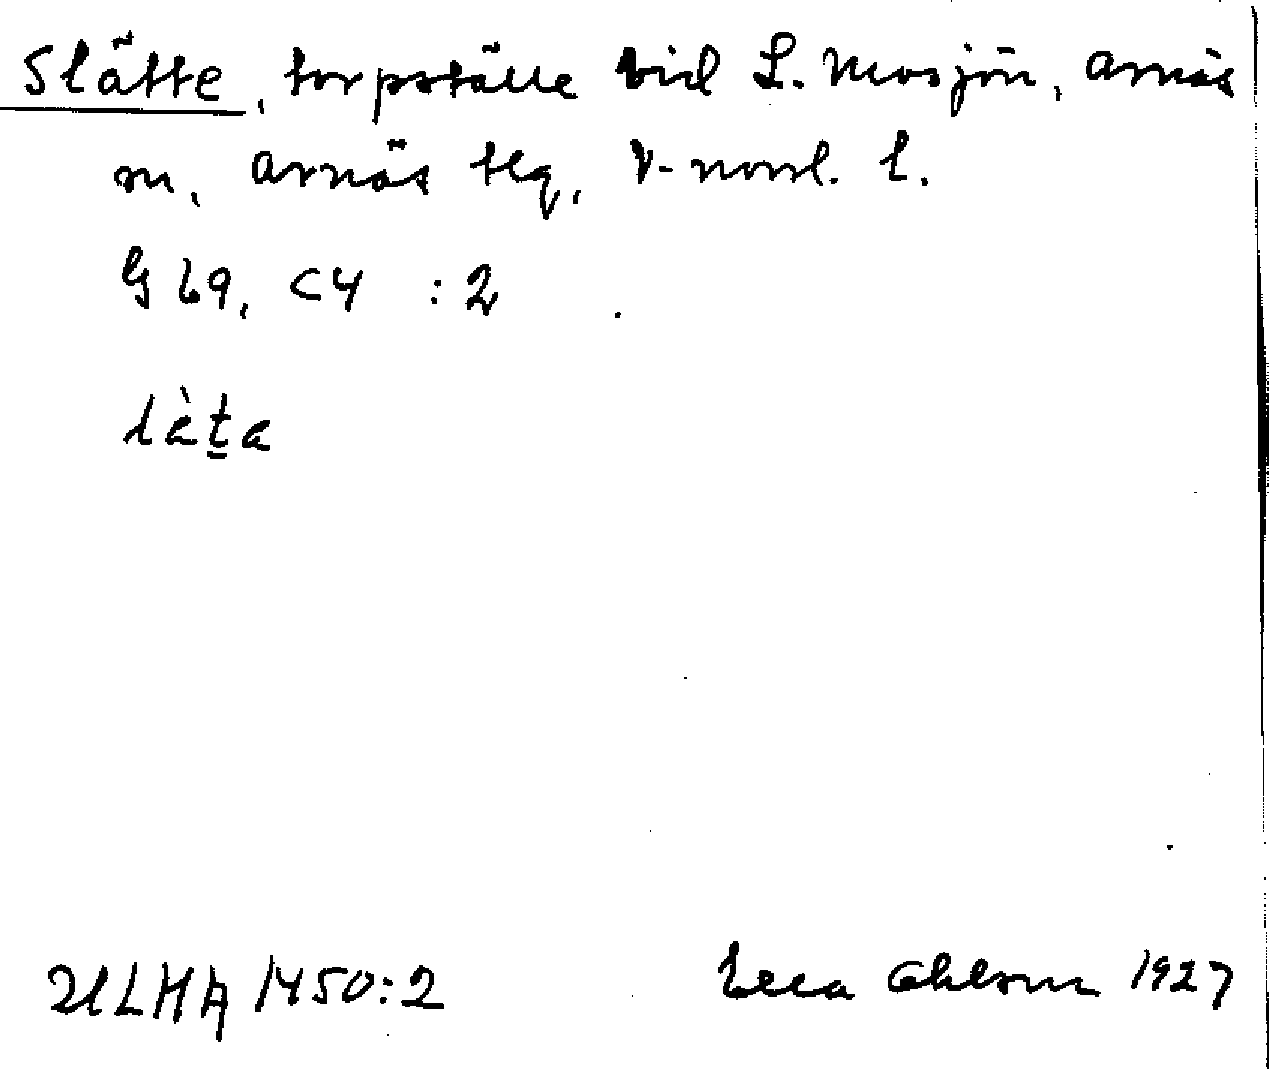 Slätte, torpställe vid L. Mosjön, Arnäs
m, Arnäs tlg, V-norrl. l.
G 69, C4 : 2
lä̀t̲a
ULMA 1450:2 1927